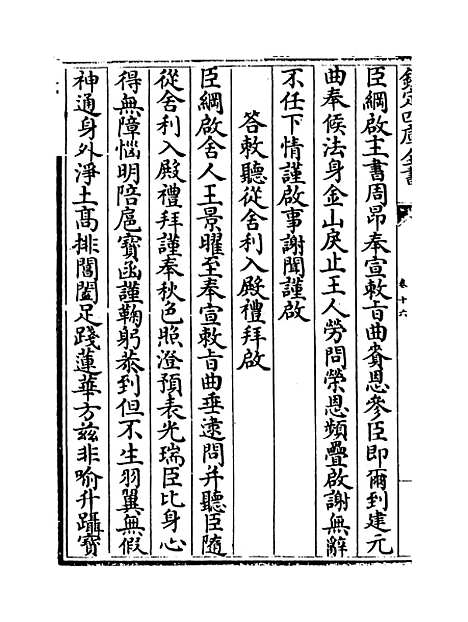 欽定四庫全書
卷十六
臣綱啟主書周昂奉宣敕旨曲賚恩參臣即爾到建元
曲奉候法身金山戾止王人勞問榮恩頻疊啟謝無辭
不任下情謹啟事謝聞謹啟
答敕聽從舍利入殿禮拜啟
臣綱啟舍人王景曜至奉宣敕旨曲垂逮問并聽臣隨
從舍利入殿禮拜謹奉秋色照澄預表光瑞臣比身心
得無障惱明陪扈寶函謹鞠躬恭到但不生羽翼無假
神通身外淨土高排閶闔足踐蓮華方茲非喻升躡寶